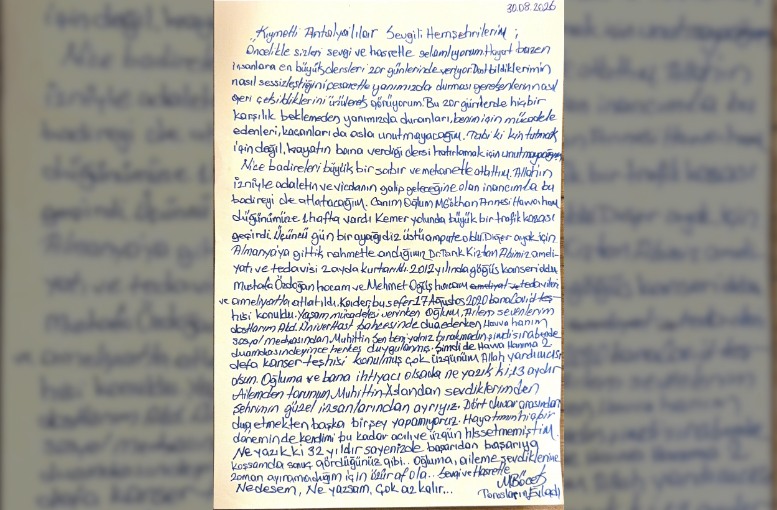 30.08.2026
"Kıymetli Antalyalılar Sevgili Hemşehrilerim ;
Öncelikle sizleri sevgi ve hasretle selamlıyorum. Hayat bazen
insanlara en büyük dersleri zor günlerinde veriyor. Dost bildiklerimin
nasıl sessizleştiğini cesaretle yanımızda durması gerekenlerin nasıl
geri çekildiklerini görüyorum. Bu zor günlerde hiçbir
karşılık beklemeden yanımızda duranları, benim için mücadele
edenleri, kaçanları da asla unutmayacağım. Tabi ki kin tutmak
için değil, hayatın bana verdiği dersi hatırlamak için unutmayacağım
Nice badireleri büyük bir sabır ve metanetle atlattım. Allahın
izniyle adaletin ve vicdanın galip geleceğine olan inancımla bu
badireyi de atlatacağım. Canım Oğlum M.Gökhan Annesi Havva hanım
düğünümüze 1 hafta vardı Kemer yolunda büyük bir trafik kazası
geçirdi. Üçüncü gün bir ayağı diz üstü ampute oldu. Diğer ayak için
Almanya'ya gittik, rahmetle andığım Dr. Tarık Kızıltan Abimiz ameli-
yatı ve tedavisi 2 ayda kurtarıldı. 2012 yılında göğüs kanseri oldu,
Mustafa Özdoğan hocam ve Mehmet Oğüş hocam tedavileri
ve ameliyatla atlatıldı. Kader, bu sefer 17 Ağustos 2020 bana Covid teş
hisi konuldu. Yaşam mücadelesi verirken Oğlum, Ailem sevenlerim
dostlarım Akd. Üniver. Hast. bahçesinde dua ederken Havva hanım
sosyal medyasından, Muhittin Sen beni yalnız bırakmadın, şimdi sıra bende
duamda sin deyince herkes duygulanmış. Şimdi de Havva Hanıma 2
defa kanser teşhisi konulmuş çok üzgünüm Allah yardımcısı
olsun. Oğluma ve bana ihtiyacı olsada ne yazık ki 13 aydır
Ailemden torunum Muhittin Aslandan sevdiklerimden
Şehrimin güzel insanlarından ayrıyız. Dört duvar arasından
dua etmekten başka birşey yapamıyoruz. Hayatımın hiçbir
döneminde kendimi bu kadar acılı ve üzgün hissetmemiştim.
Ne yazık ki 32 yıldır sayenizde başarıdan başarıya
koşsamda sonuç gördüğünüz gibi.. Oğluma, aileme, sevdiklerime
zaman ayıramadığım için özür af ola.. Sevgi ve Hasretle
Ne desem, Ne yazsam, Çok az kalır...
M Böcek
Torosların Evladı